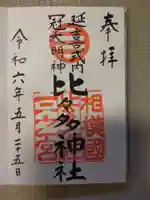 奉拝
延喜式内
冠大明神
比々多神社
相模國
三之宮
令和六年五月二十五日